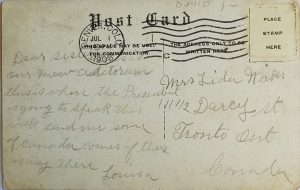 Post Card
THIS SPACE MAY BE USED
FOR COMMUNICATION
THE ADDRESS ONLY TO BE
WRITTEN HERE
PLACE
STAMP
HERE
DENVER, COLO.
JUL
1908
Dear Sister
our new Auditorium
this is where the President
is going to speak this
send me some
of Canada views if they
any there
Louisa
Mrs Lida
111 1/2 Darcy st
Tronto Ont
Canada